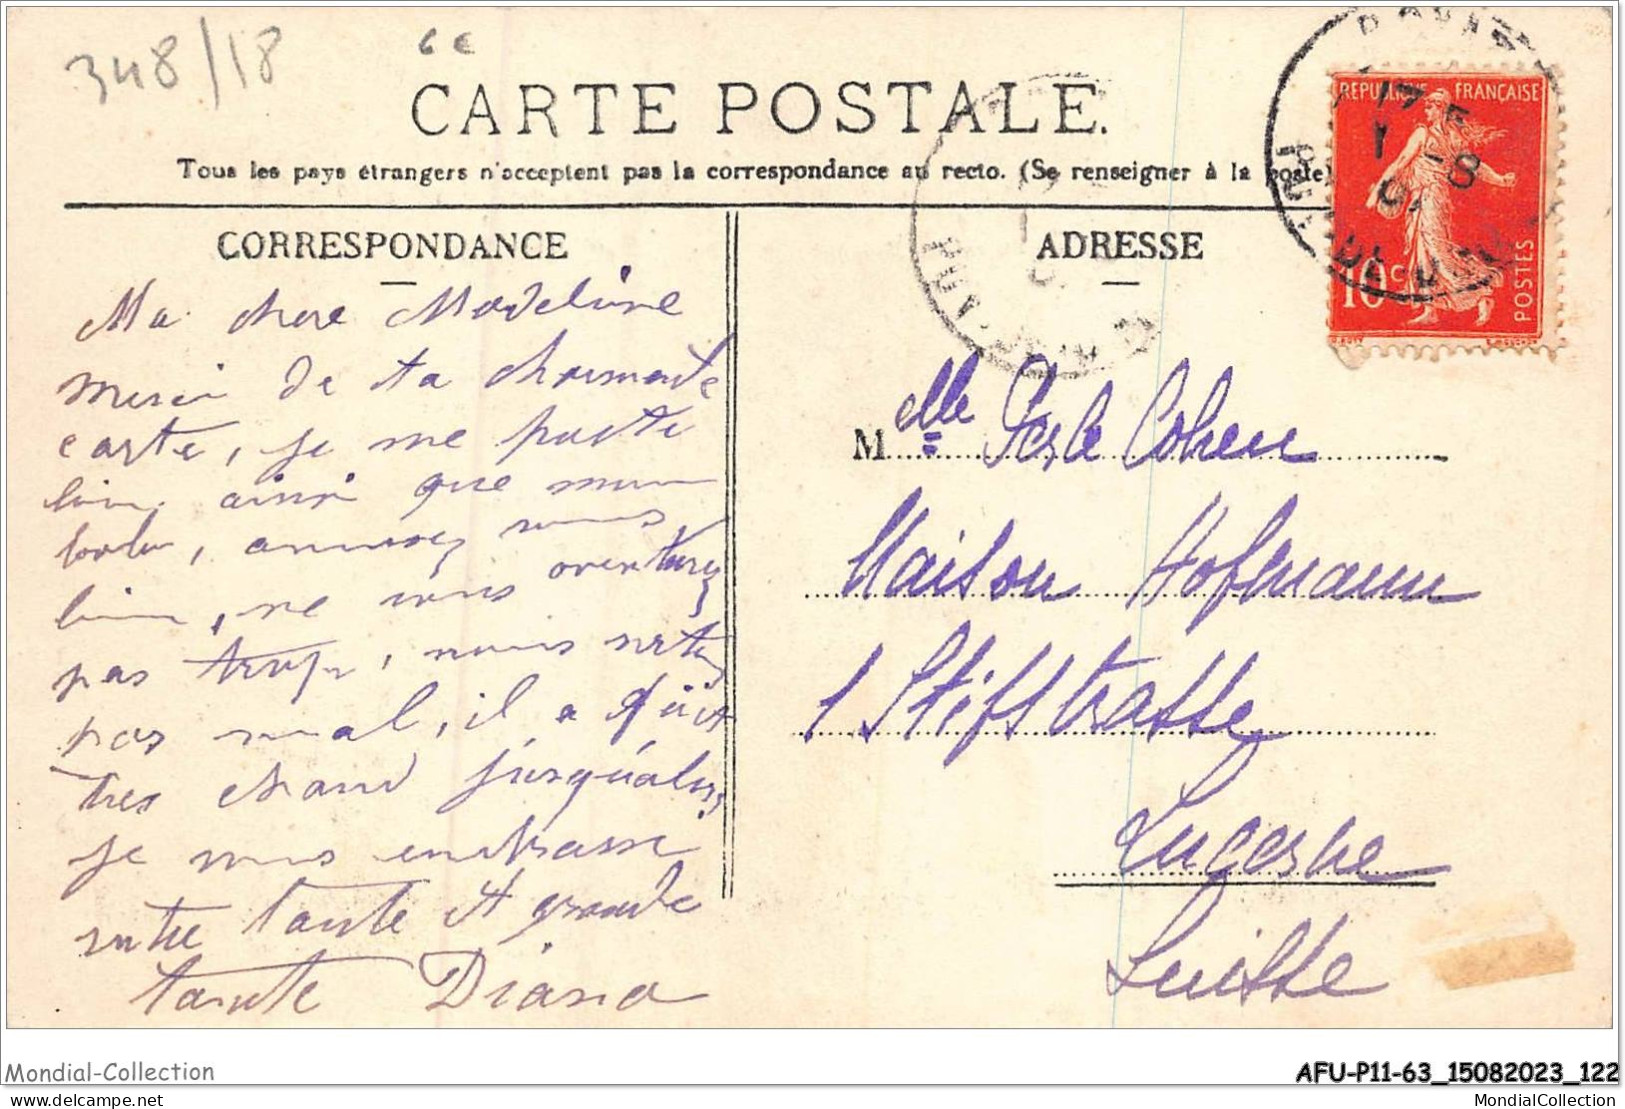 348/18
6 €
CARTE POSTALE.
Tous les pays étrangers n'acceptent pas la correspondance au recto. (Se renseigner à la poste)
CORRESPONDANCE
ADRESSE
REPUBLIQUE FRANÇAISE
10 c
POSTES
Ma chere Madeleine
merci de ta charmante
carte, je me porte
bien ainsi que mon
amusez vous
bien, ne vous aventurez
pas trop, vous
pas mal, il a fait
tres chaud jusqu'alors
je vous embrasse
votre tante et grande
tante Diana
Melle Perle Cohen
Maison Hofmann
1 Stiftstrasse
Lucerne
Suisse
Mondial-Collection
AFU-P11-63_15082023_122
delcampe.net
MondialCollection